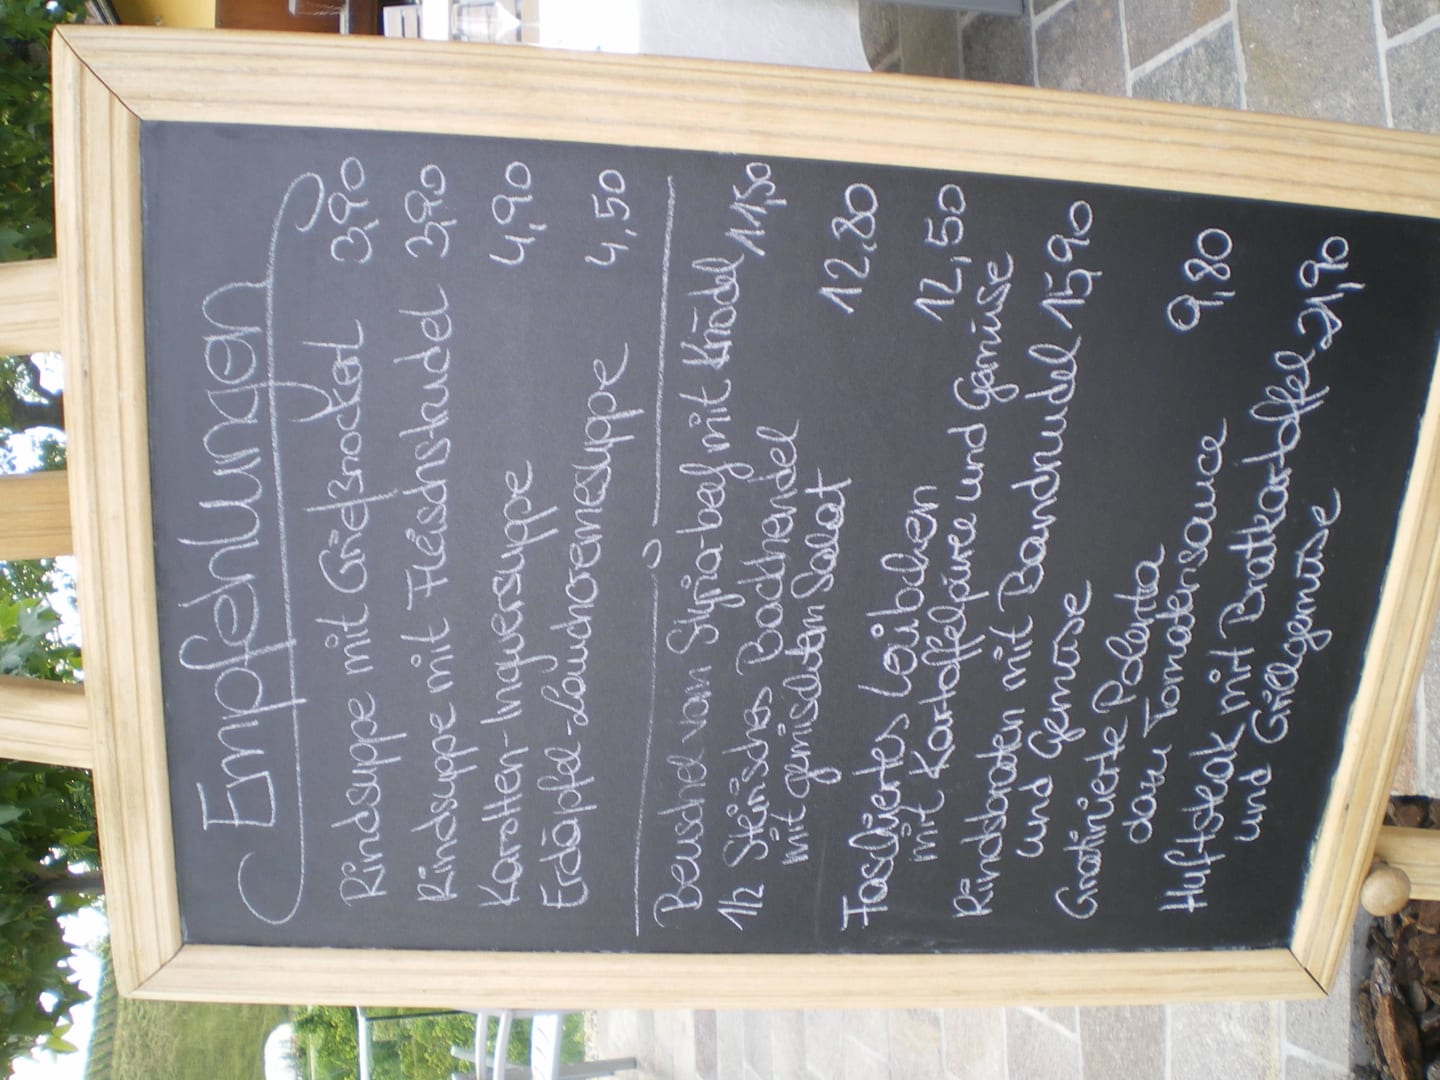 Empfehlungen
Rindsuppe mit Grießnockerl 3,90
Rindsuppe mit Fleischstrudel 3,90
Karotten-Ingwersuppe 4,90
Erdäpfel-Lauchcremesuppe 4,50
Beuschel vom Styria-beef mit Knödel 11,50
1/2 Steirisches Backhendel
mit gemischtem Salat 12,80
Faschiertes Laibchen
mit Kartoffelpüree und Gemüse 12,50
Rindsbraten mit Bandnudel 15,90
und Gemüse
Gratinierte Polenta
dazu Tomatensauce 9,80
Hüftsteak mit Bratkartoffel 21,90
und Grillgemüse